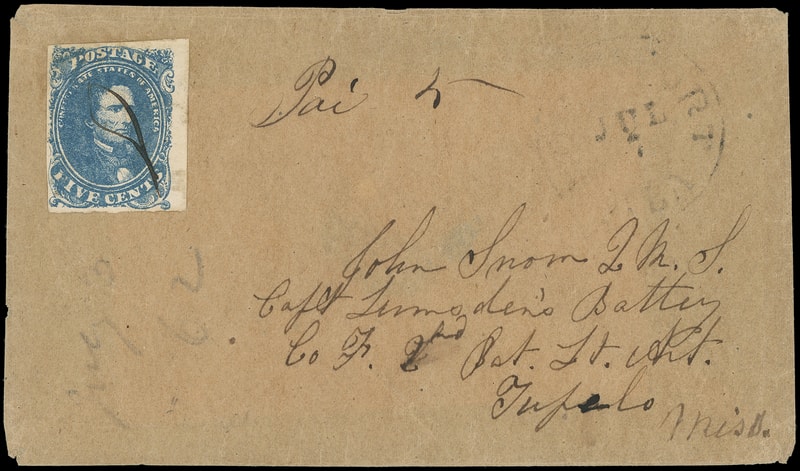 POSTAGE
CONFEDERATE STATES OF AMERICA
FIVE CENTS
Pai 5
JUL
John Snow Q. M. S.
Capt Lumsden's Battery
Co F. 2nd Bat. Lt. Art.
Tupelo Miss.